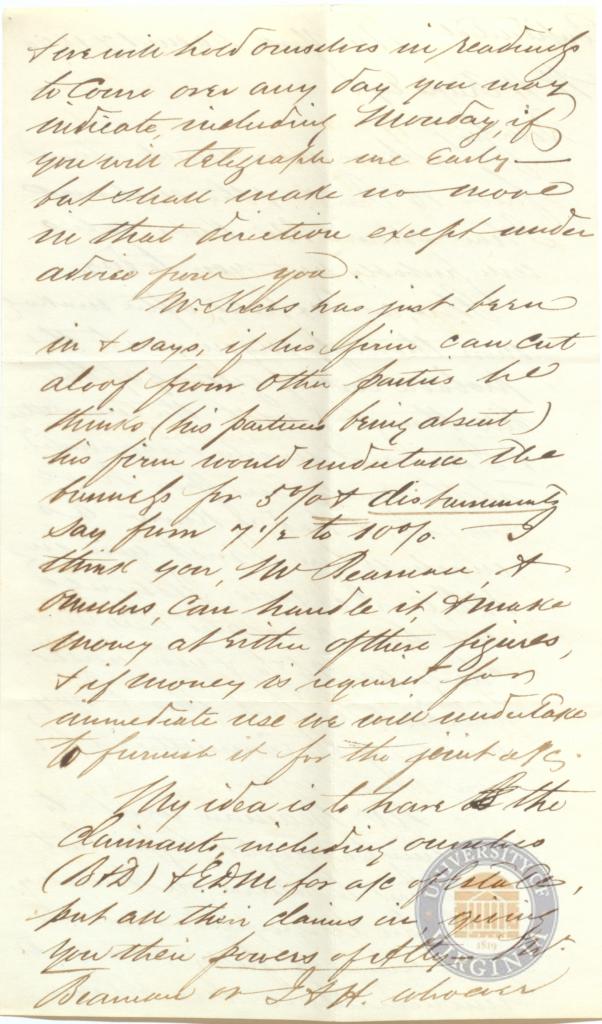 & we will hold ourselves in readiness
to come over any day you may
indicate, including Monday, if
you will telegraph me early —
but shall make no move
in that direction except under
advice from you.
Mr. Krebs has just been
in & says, if his firm can cut
aloof from other parties he
thinks (his partners being absent)
his firm would undertake the
business for 5% & disbursements
say from 7 1/2 to 10%. — I
think you, Mr Beaman, &
ourselves, can handle it, & make
money at either of these figures,
& if money is required for
immediate use we will undertake
to furnish it for the joint a/c.
My idea is to have the
claimants, including ourselves
(B&D) & E.D.M for a/c of
put all their claims in, giving
you their powers of Atty. Mr.
Beaman or J & H. whoever
UNIVERSITY OF VIRGINIA
1819